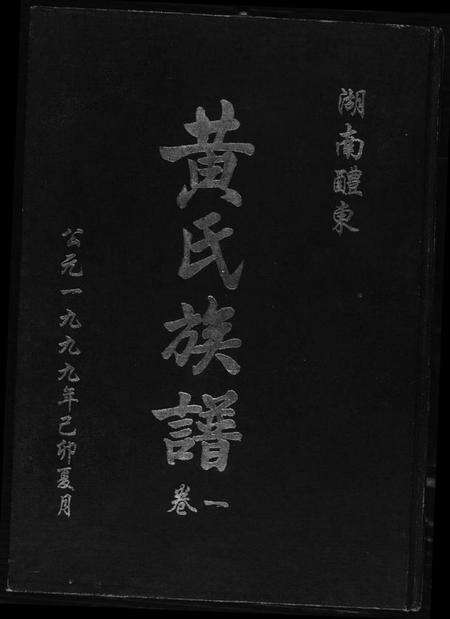 湖南醴東
黃氏族譜
卷一
公元一九九九年己卯夏月